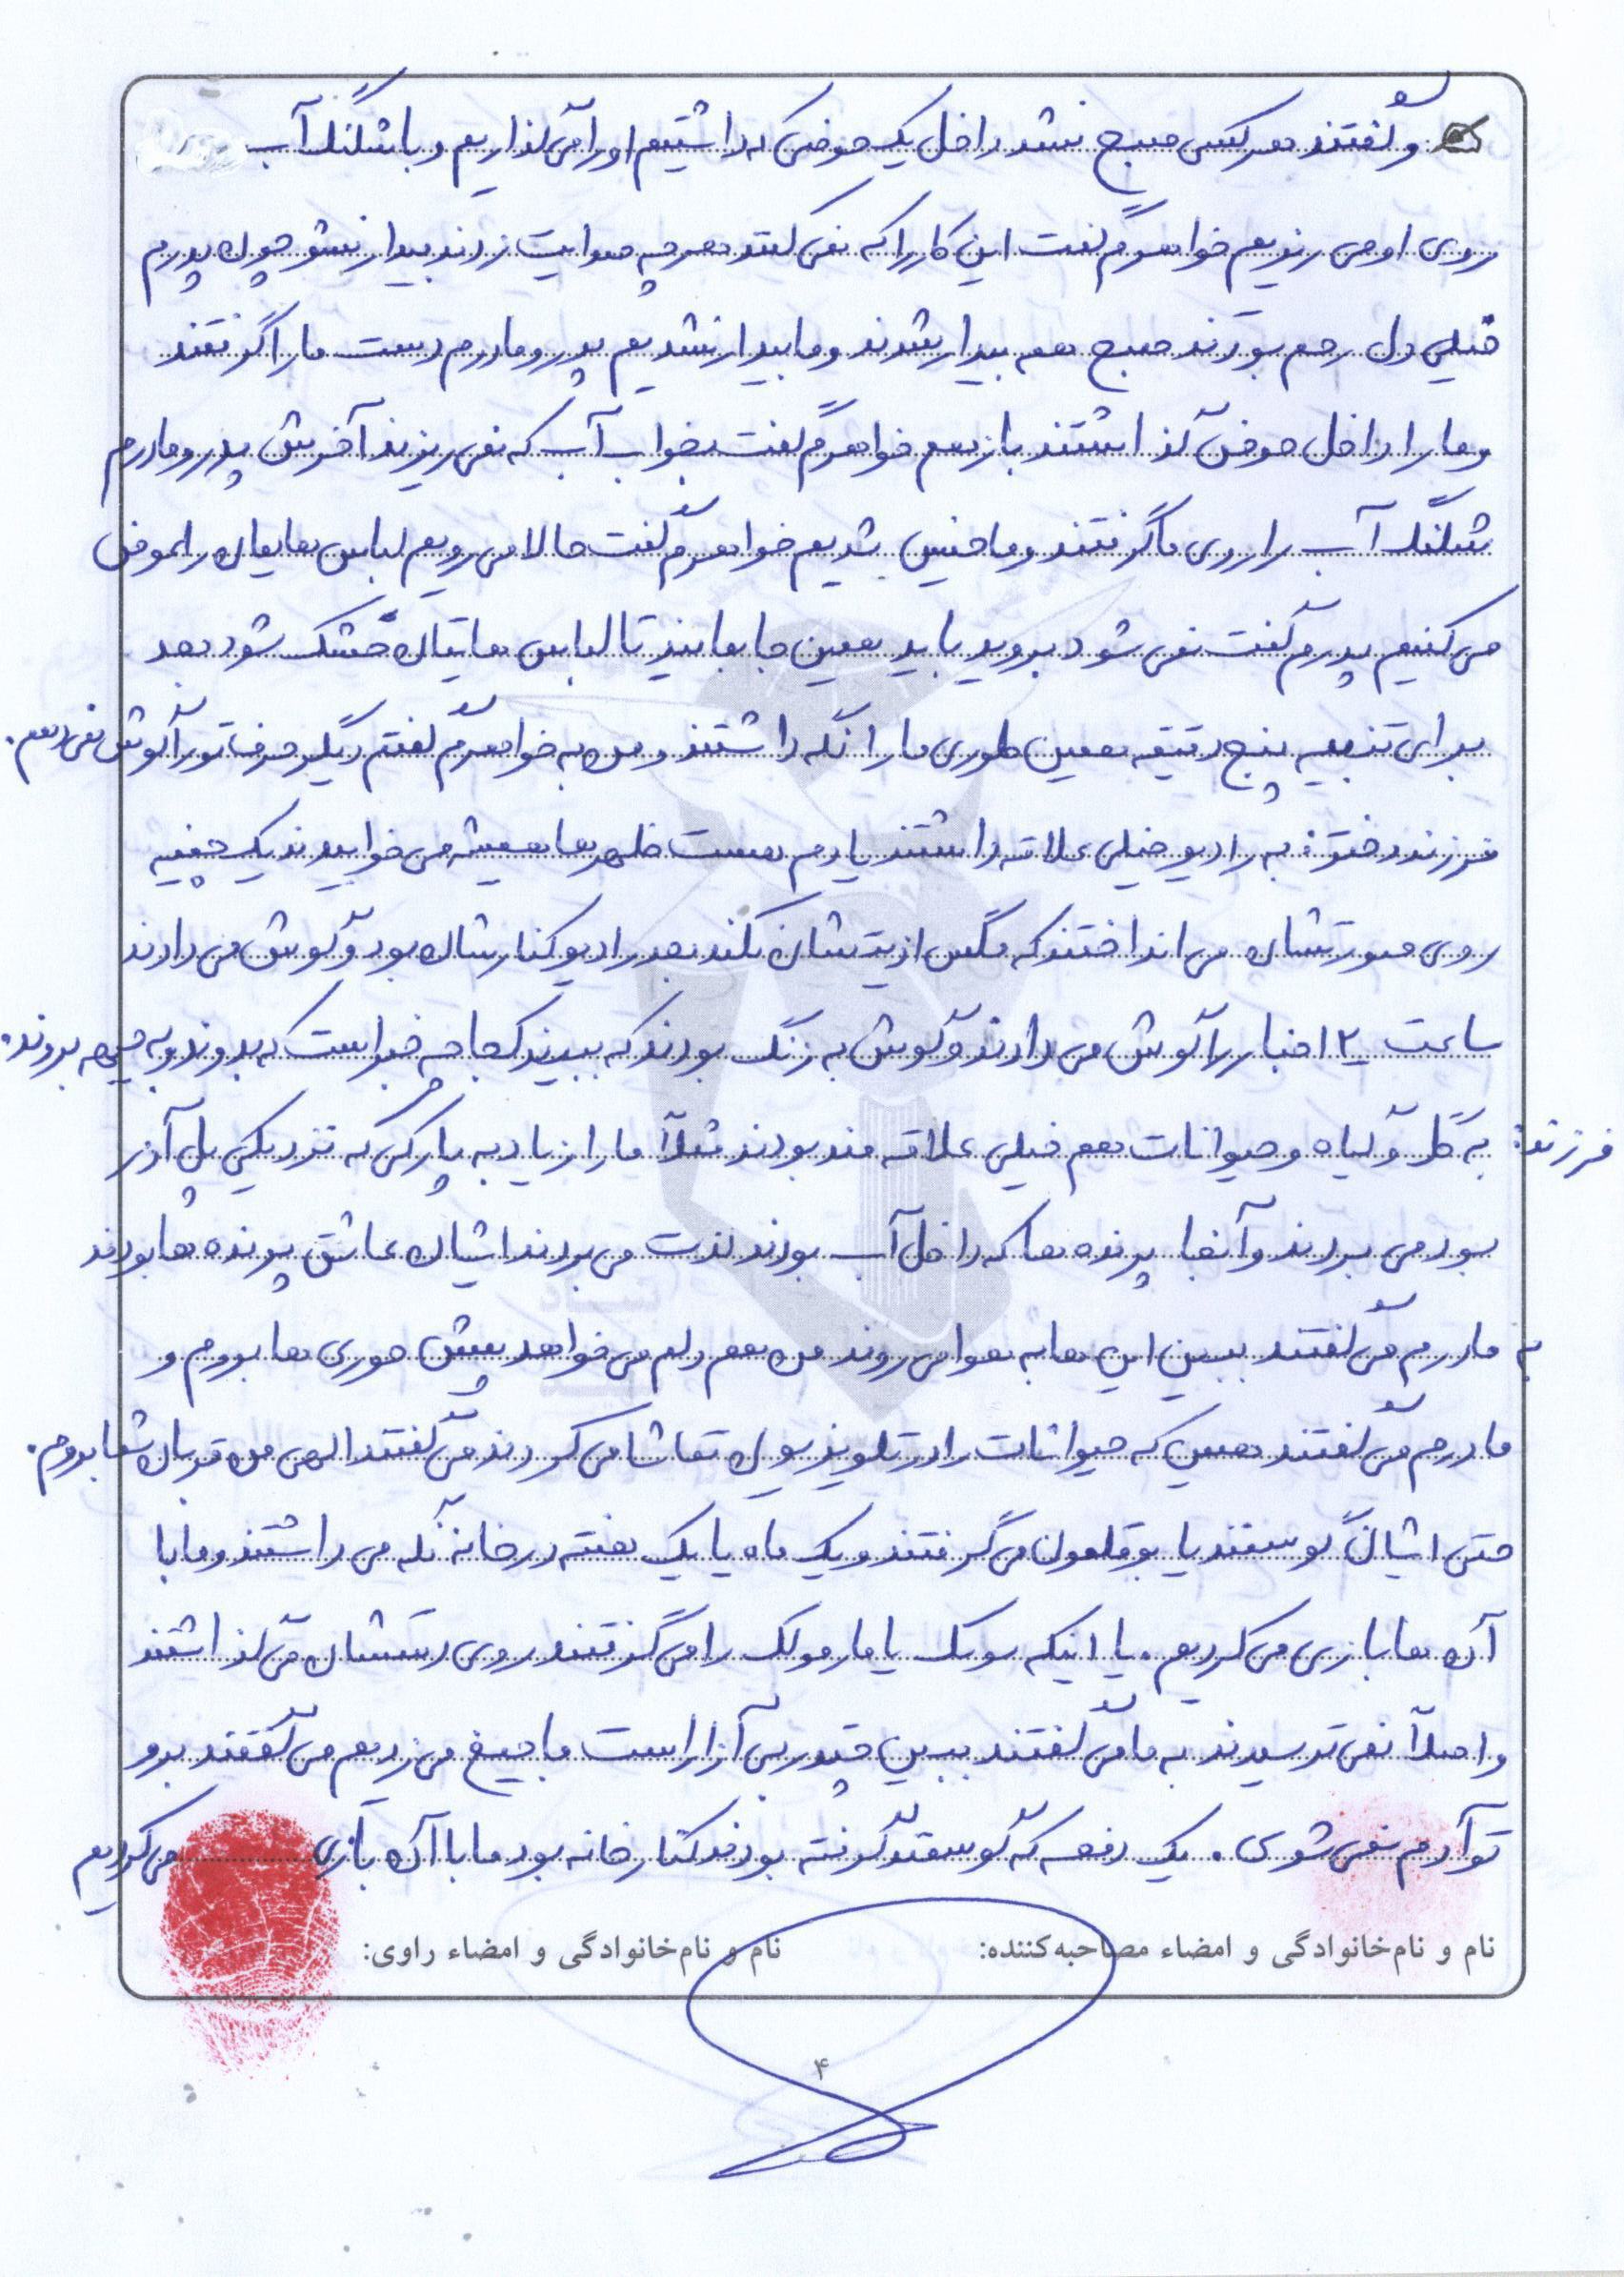 و گفتند هر کس صبح نشد داخل یک حوضی که داشتیم او را می گذاریم و با شلنگ آب
روی او می ریزیم خواهرم گفت این کار را که نمی کنند هر چه صدایت زدند بیدار نشو چون پدرم
خیلی دل رحم بودند صبح همه بیدار شدند و ما بیدار نشدیم پدر و مادرم دست ما را گرفتند
و ما را داخل حوض گذاشتند باز هم خواهرم گفت بخواب آب که نمی ریزند آخرش پدر و مادرم
شلنگ آب را روی ما گرفتند و ما خیس شدیم خواهرم گفت حالا می رویم لباس هایمان را عوض
می کنیم پدرم گفت نمی شود بروید باید همین جا بمانید تا لباس هایتان خشک شود بعد
برای تنبیه پنج دقیقه همین طوری ما را نگه داشتند و من به خواهرم گفتم دیگر حرف تو را گوش نمی دهم.
فرزند دختر: به رادیو خیلی علاقه داشتند یادم هست ظهرها همیشه می خوابیدند یک چفیه
روی صورتشان می انداختند که مگس اذیتشان نکند بعد رادیو کنارشان بود و گوش می دادند
ساعت ۱۲ اخبار را گوش می دادند و گوش به زنگ بودند که ببینند کجا چه خبر است که بدوند و به جبهه بروند.
فرزند: به گل و گیاه و حیوانات هم خیلی علاقه مند بودند مثلاً ما را زیاد به پارکی که نزدیکی پل آذر
بود می بردند و آنجا پرنده ها که داخل آب بودند لذت می بردند ایشان عاشق پرنده ها بودند
به مادرم می گفتند ببین این ها به هوا می روند من هم دلم می خواهد پیش حوری ها بروم و
مادرم می گفتند همین که حیوانات را در تلویزیون تماشا می کردند می گفتند الهی من قربان شما بروم.
حتی ایشان گوسفند یا بوقلمون می گرفتند و یک ماه یا یک هفته در خانه نگه می داشتند و ما با
آن ها بازی می کردیم. یا اینکه سوسک یا مارمولک را می گرفتند روی دستشان می گذاشتند
و اصلاً نمی ترسیدند به ما می گفتند ببین چقدر بی آزار است ما جیغ می زدیم می گفتند برو
تو آدم نمی شوی. یک دفعه که گوسفند گرفته بودند کنار خانه بود ما با آن بازی می کردیم
نام و نام‌خانوادگی و امضاء مصاحبه‌کننده: نام و نام‌خانوادگی و امضاء راوی:
۴